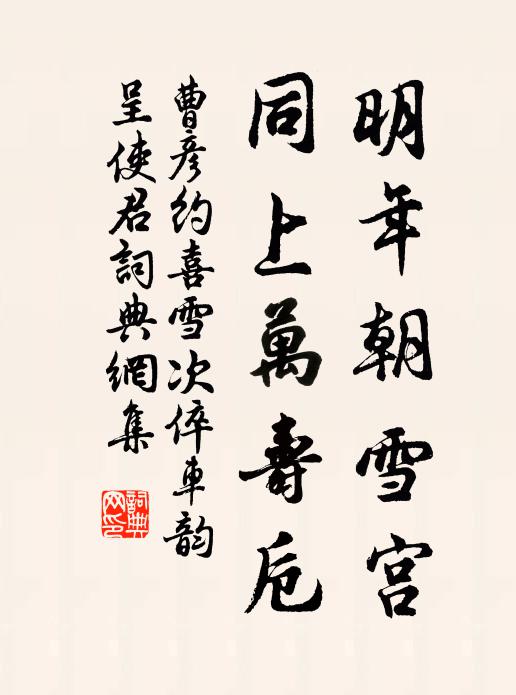 明年朝雪宫
同上萬壽卮
曹彦約喜雪次倅車韵
呈使君詞典網集
詞典
网印